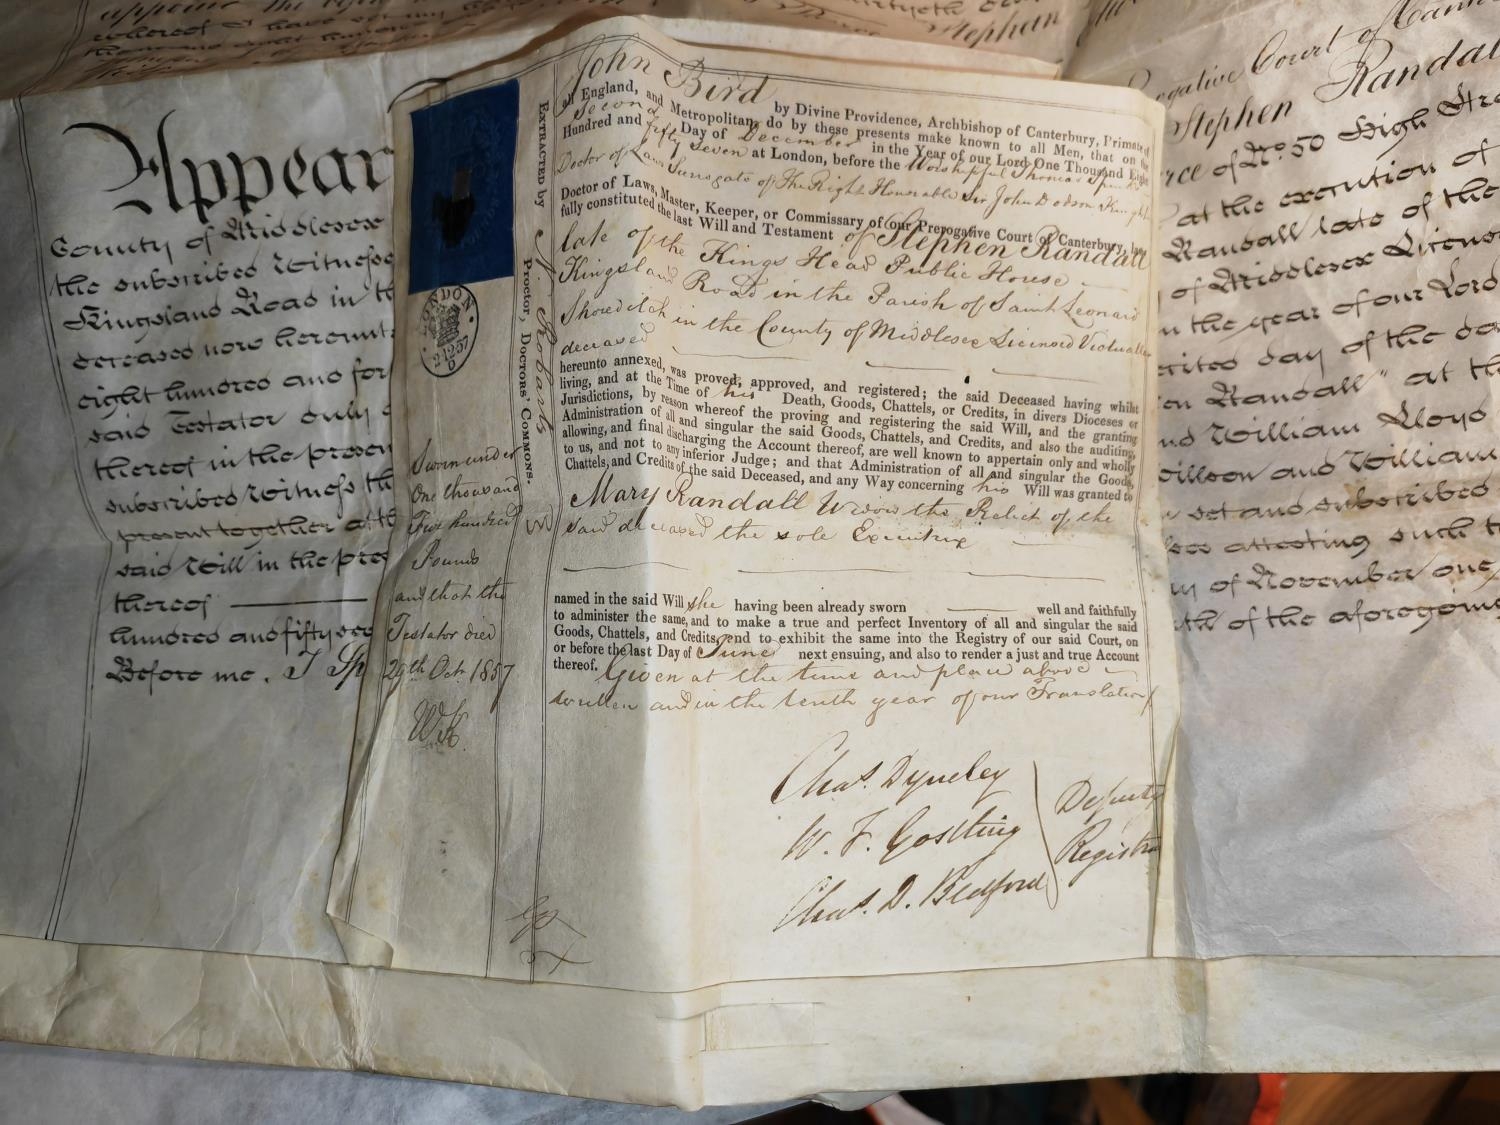 Stephen
Appear
County of Middlesex
the subscribed Witnesses
Kingsland Road in th
deceased now hereunt
eight hundred and for
said Testator duly
thereof in the presen
subscribed Witness th
present together at th
said Will in the pres
thereof
hundred and fifty sev
Before me. T Sp
LONDON
2·12·57
D
EXTRACTED by
Proctor, DOCTORS' COMMONS.
Sworn under
One thousand
Five hundred
Pounds
and that the
Testator died
29th Oct. 1857
John Bird by Divine Providence, Archbishop of Canterbury, Primate of
all England, and Metropolitan, do by these presents make known to all Men, that on the
Second Day of December in the Year of our Lord One Thousand Eight
Hundred and fifty seven at London, before the Worshipful Thomas
Doctor of Laws Surrogate of The Right Honorable Sir John Dodson Knight
Doctor of Laws, Master, Keeper, or Commissary of our Prerogative Court of Canterbury, law-
fully constituted the last Will and Testament of Stephen Randall
late of the Kings Head Public House
Kingsland Road in the Parish of Saint Leonard
Shoreditch in the County of Middlesex Licensed Victualler
deceased
hereunto annexed, was proved, approved, and registered; the said Deceased having whilst
living, and at the Time of his Death, Goods, Chattels, or Credits, in divers Dioceses or
Jurisdictions, by reason whereof the proving and registering the said Will, and the granting
Administration of all and singular the said Goods, Chattels, and Credits, and also the auditing,
allowing, and final discharging the Account thereof, are well known to appertain only and wholly
to us, and not to any inferior Judge; and that Administration of all and singular the Goods,
Chattels, and Credits of the said Deceased, and any Way concerning his Will was granted to
Mary Randall Widow the Relict of the
said deceased the sole Executrix
named in the said Will she having been already sworn well and faithfully
to administer the same, and to make a true and perfect Inventory of all and singular the said
Goods, Chattels, and Credits, and to exhibit the same into the Registry of our said Court, on
or before the last Day of June next ensuing, and also to render a just and true Account
thereof. Given at the time and place above
written and in the tenth year of our Translation
Chas. Dyneley
W. F. Gostling
Chas. D. Bedford
Deputy
Registra
rogative Court of Can
Stephen Randall
of No. 50 High
at the execution of
Randall late of the
of Middlesex Licens
the year of our Lord
day of the
Randall" at th
William Lloyd
Willson and William
set and subscribed
attesting such
of November one
of the aforegoing